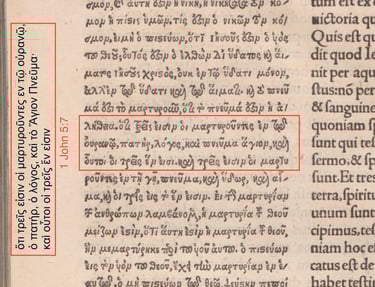 ὅτι τρεῖς εἰσιν οἱ μαρτυροῦντες ἐν τῷ οὐρανῷ,
ὁ πατήρ, ὁ λόγος, καὶ τὸ Ἅγιον Πνεῦμα·
καὶ οὗτοι οἱ τρεῖς ἕν εἰσιν
1 John 5:7
σμον, ἡ πίστις ὑμῶν, τίς ἐστιν ὁ νικῶν τὸν κό
σμον, εἰ μὴ ὁ πιστεύων, ὅτι ἰησοῦς ἐστιν ὁ υἱὸς
τοῦ θεοῦ, οὗτός ἐστιν ὁ ἐλθὼν δι ὕδατος καὶ αἵ
ματος ἰησοῦς χριστὸς, οὐκ ἐν τῷ ὕδατι μόνον,
ἀλλ' ἐν τῷ ὕδατι καὶ τῷ αἵματι. καὶ τὸ πνεῦ
μά ἐστι τὸ μαρτυροῦν, ὅτι τὸ πνεῦμά ἐστιν ἡ ἀ
λήθεια, ὅτι τρεῖς εἰσιν οἱ μαρτυροῦντες ἐν τῷ
οὐρανῷ, πατὴρ, λόγος, καὶ πνεῦμα ἅγιον, καὶ
οὗτοι οἱ τρεῖς ἕν εἰσι. καὶ τρεῖς εἰσιν οἱ μαρτυ
ροῦντες ἐν τῇ γῇ, πνεῦμα, καὶ ὕδωρ, καὶ αἷ
μα, καὶ οἱ τρεῖς εἰς τὸ ἕν εἰσι. εἰ τὴν μαρτυρίαν
τῶν ἀνθρώπων λαμβάνομεν, ἡ μαρτυρία τοῦ θεοῦ
μείζων ἐστὶν, ὅτι αὕτη ἐστὶν ἡ μαρτυρία τοῦ θεοῦ,
ἣν μεμαρτύρηκε περὶ τοῦ υἱοῦ αὐτοῦ. ὁ πιστεύων
εἰς τὸν υἱὸν τοῦ θεοῦ, ἔχει τὴν μαρτυρίαν ἐν ἑ
αυτῷ. ὁ μὴ πιστεύων τῷ θεῷ, ψεύστην πεποι
tum est ex d
uictoria qu
Quis est qu
dit quod Ie
nit per aqu
stus: nō per
& sanguine
quoniam S
sunt qui tes
sermo, & sp
sunt. Et tres
terra, spiritu
unum sunt
cipimus, tes
niam hoc es
catus est de
habet testim